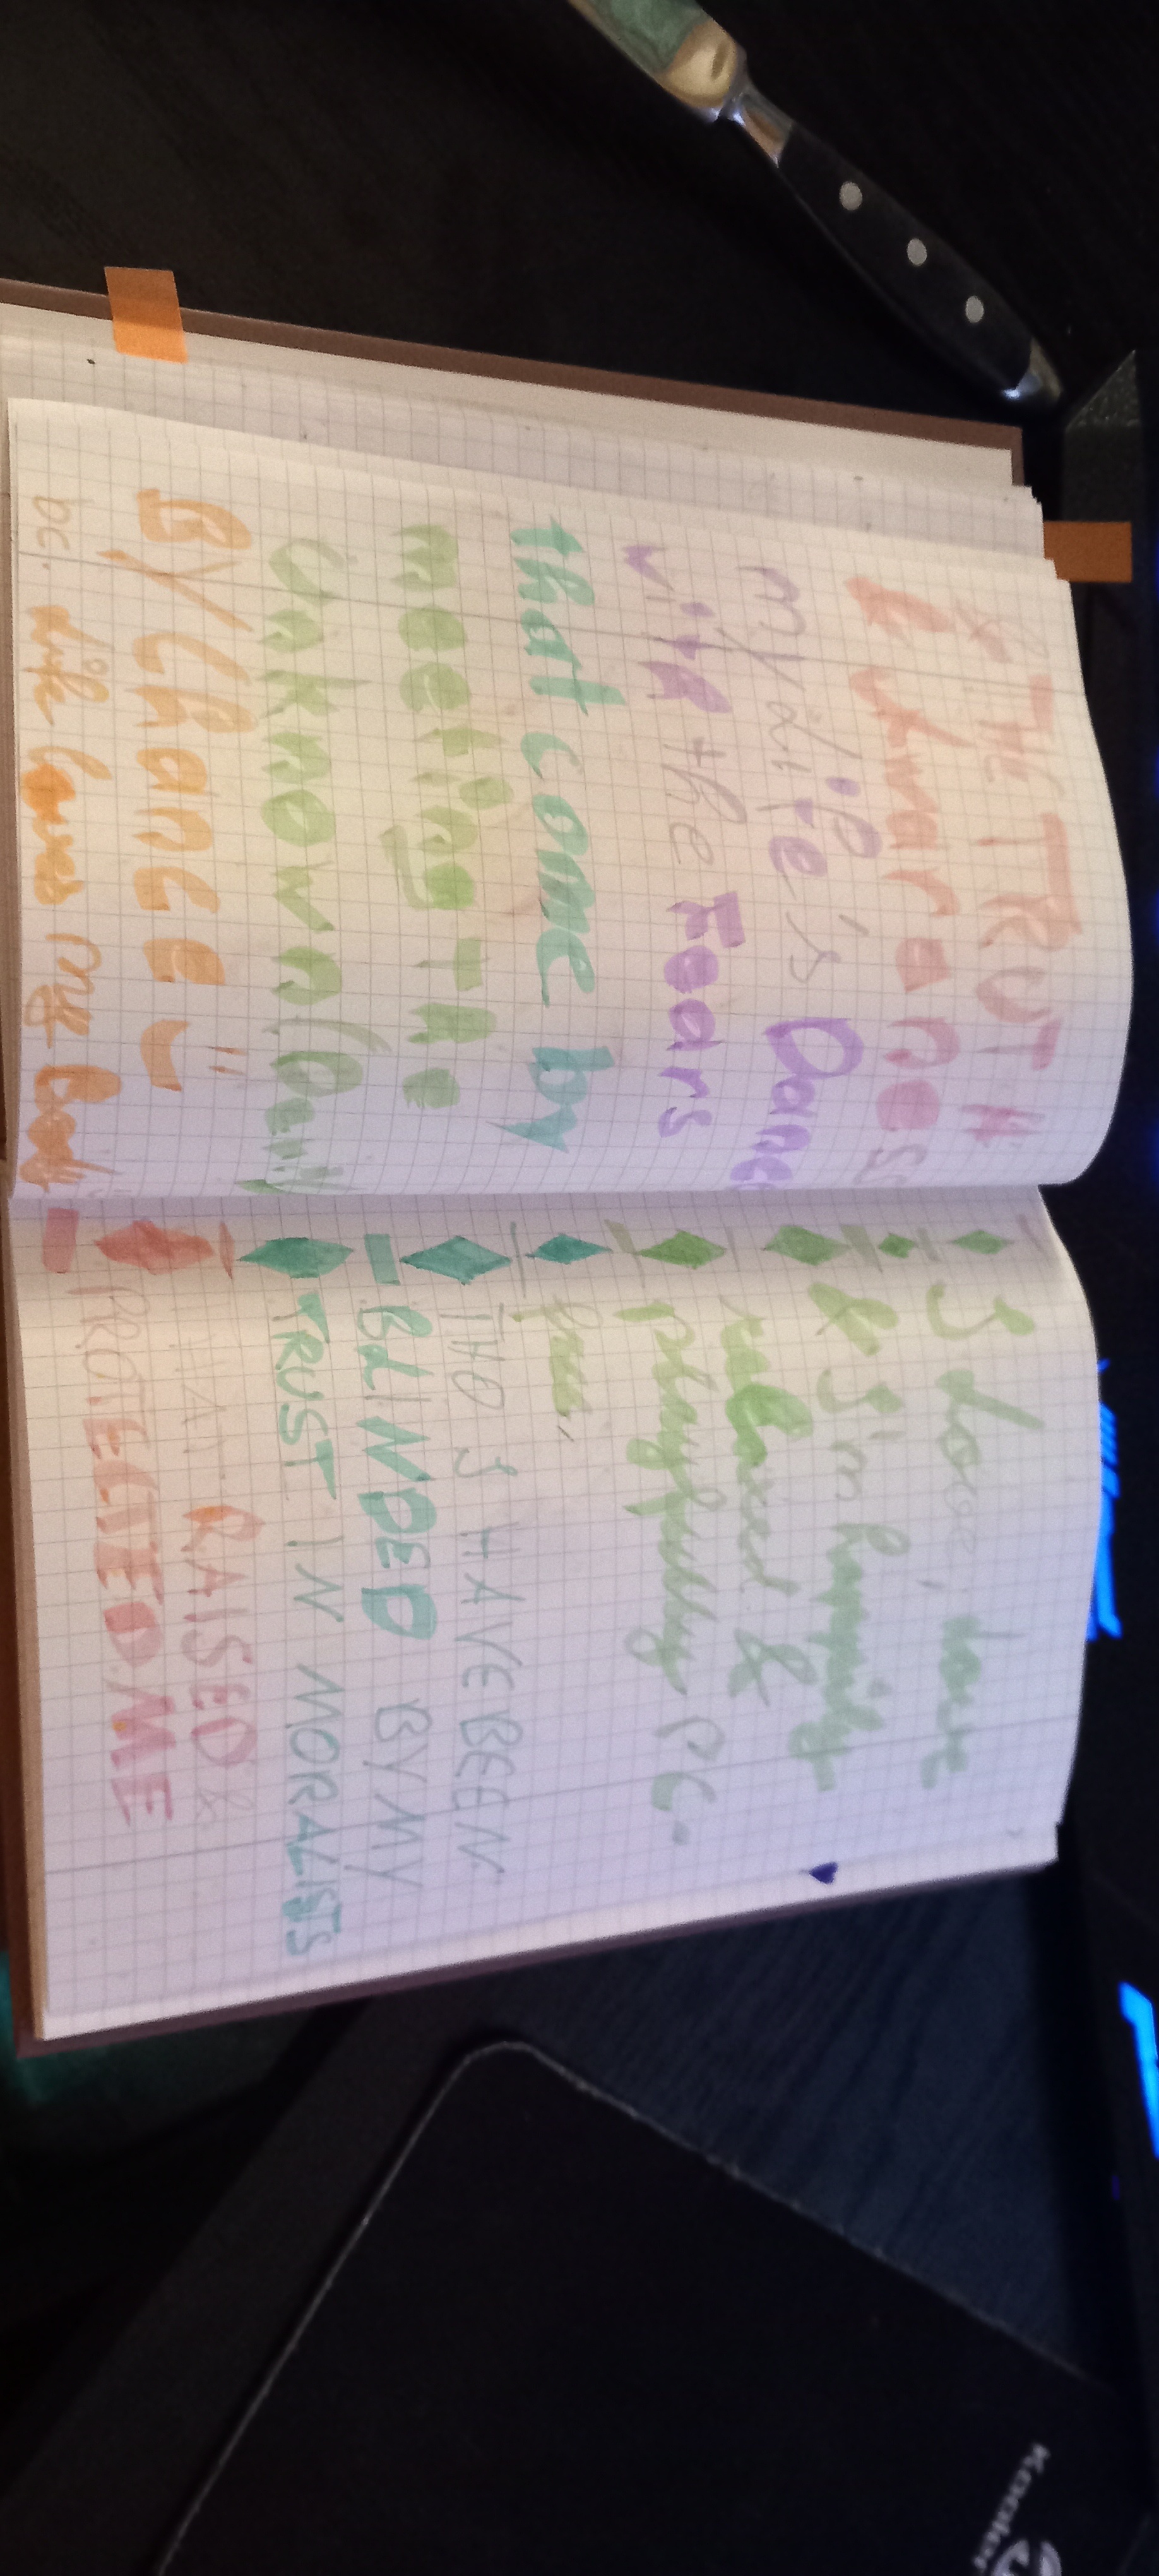 & THE TRUTH
& Awareness
my life's Dance
with the Fears
that come by
meeting The
unknown (
By Chance "
bc. Life loves my body
I Love, love
& I'm happily
relaxed &
playfully PC-
free,
THO I HAVE BEEN
BLINDED BY MY
TRUST IN MORALISTS
THAT RAISED &
PROTECTED ME